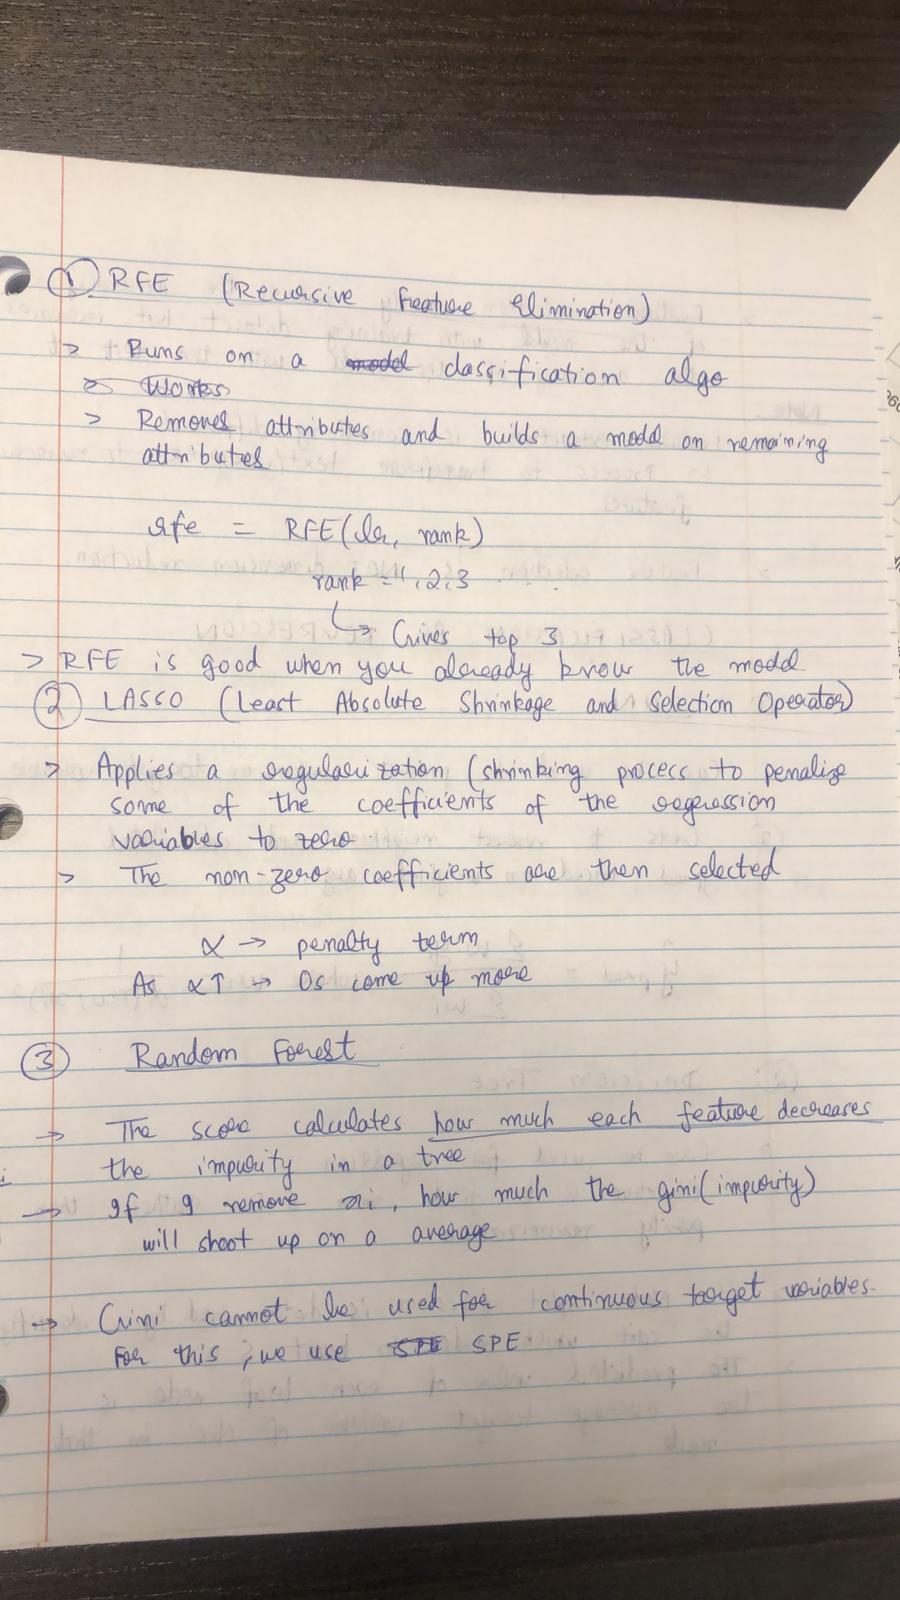 ① RFE (Recursive Feature Elimination)
> Runs on a model classification algo
> Works
> Removes attributes and builds a model on remaining
attributes
rfe = RFE(lr, rank)
rank = 1, 2, 3
↳ Gives top 3
> RFE is good when you already know the model
② LASSO (Least Absolute Shrinkage and Selection Operator)
> Applies a regularization (shrinking process to penalize
some of the coefficients of the regression
variables to zero
> The non-zero coefficients are then selected
α → penalty term
As α↑ → 0s come up more
③ Random Forest
→ The score calculates how much each feature decreases
the impurity in a tree
→ If I remove xi, how much the gini(impurity)
will shoot up on a average
→ Gini cannot be used for continuous target variables.
For this, we use SPE SPE